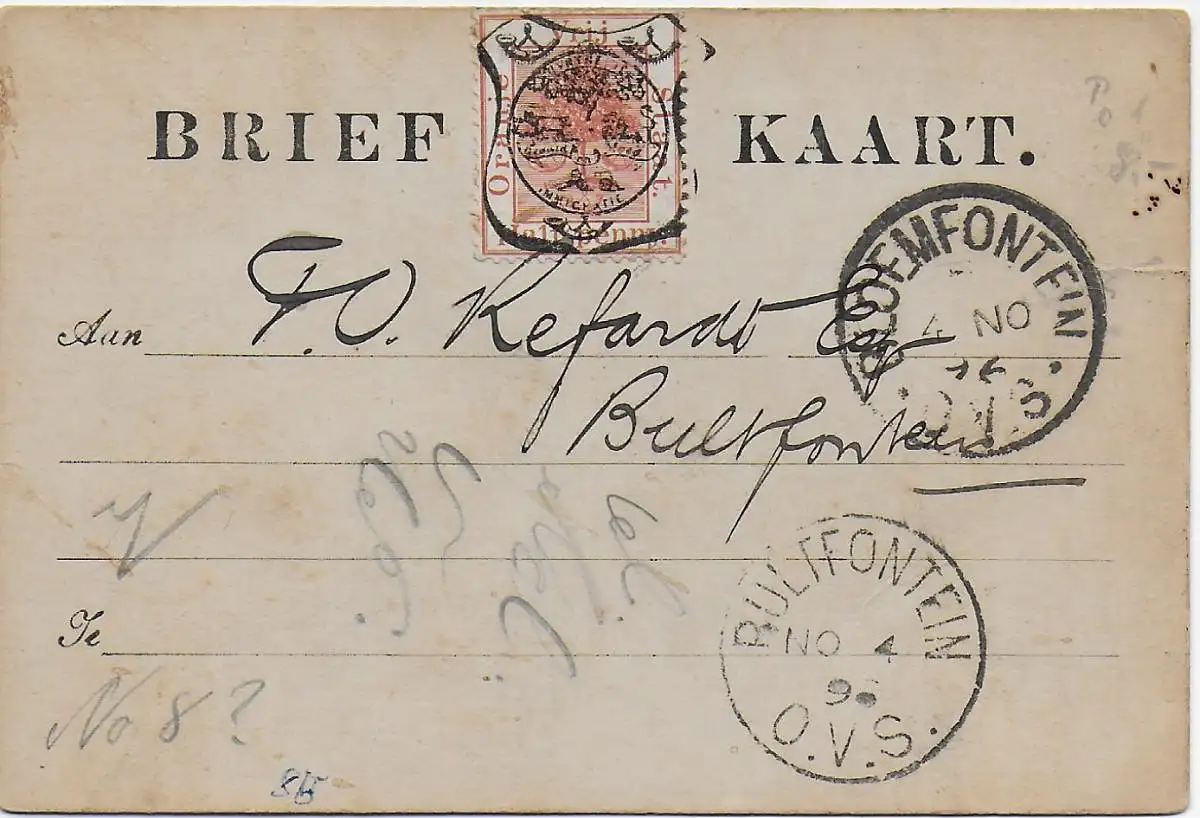 Vrij
Oranje
Staat.
Half penny.
IMMIGRATIE
BRIEF KAART.
BLOEMFONTEIN
4 NO
96
O.V.S.
Aan F. O. Refardt Esq
Bultfontein
Te
BULTFONTEIN
NO 4
96
O.V.S.
No 8?